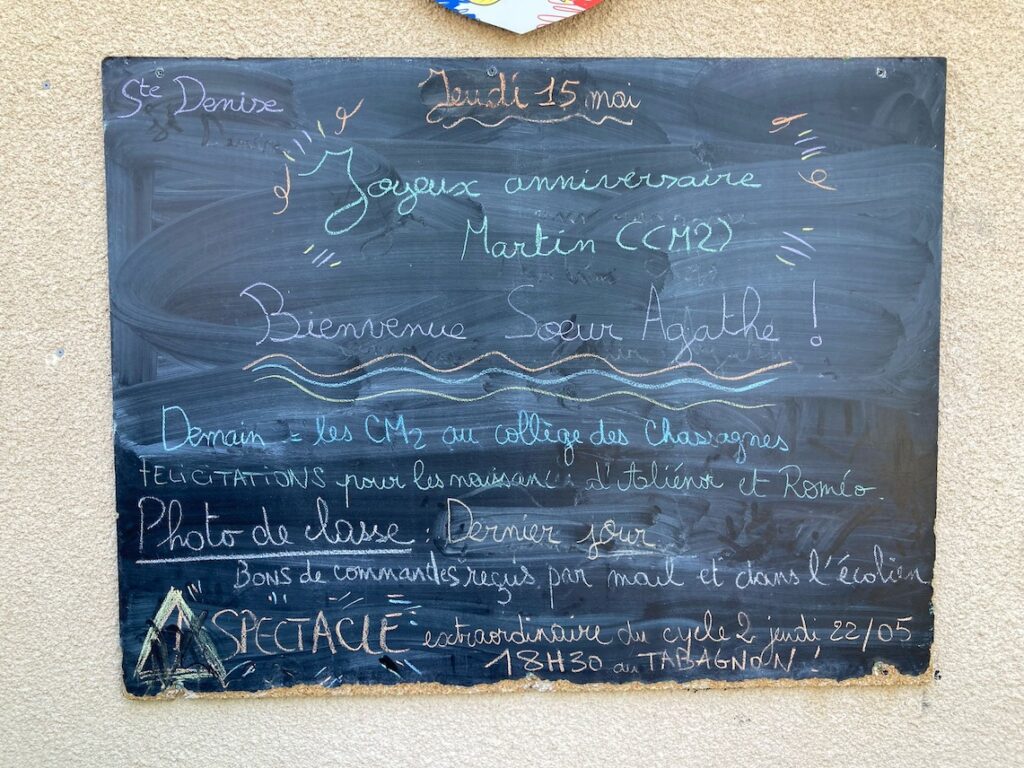 Ste Denise
Jeudi 15 mai
Joyeux anniversaire
Martin (CM2)
Bienvenue Soeur Agathe !
Demain = les CM2 au collège des Chassagnes
FELICITATIONS pour les naissances d'Aliénor et Roméo.
Photo de classe : Dernier jour
BONS de commandes reçus par mail et dans l'écolien
SPECTACLE extraordinaire du cycle 2 jeudi 22/05
18H30 au TABAGNON !